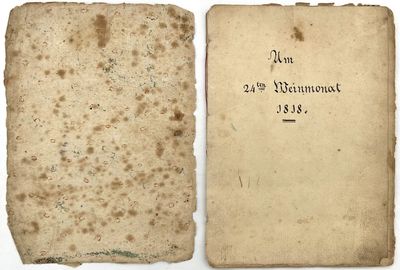 Am
24ten Weinmonat
1818.